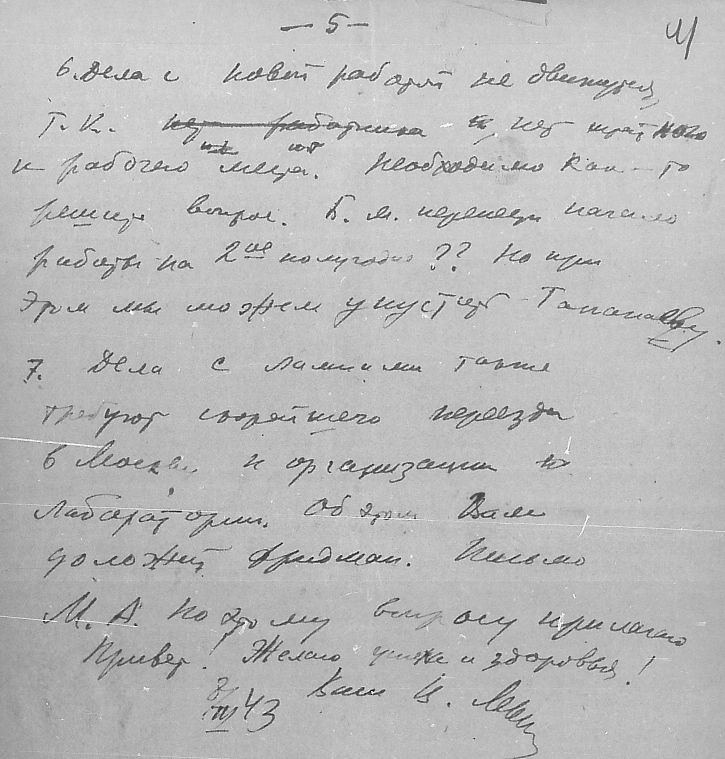 — 5 —
6. Дела с новой работой не движутся,
т.к. нет работника нет
и рабочего места. Необходимо как-то
решить вопрос. Б. м. перенести начало
работы на 2ое полугодие?? Но при
этом мы можем упустить Тананаеву.
7. Дела с лампами также
требуют скорейшего переезда
в Москву и организации
лаборатории. Об этом Вам
доложит Фридман. Письмо
М. А. по этому вопросу прилагаю
Привет! Желаю успеха и здоровья!
43 Ваш